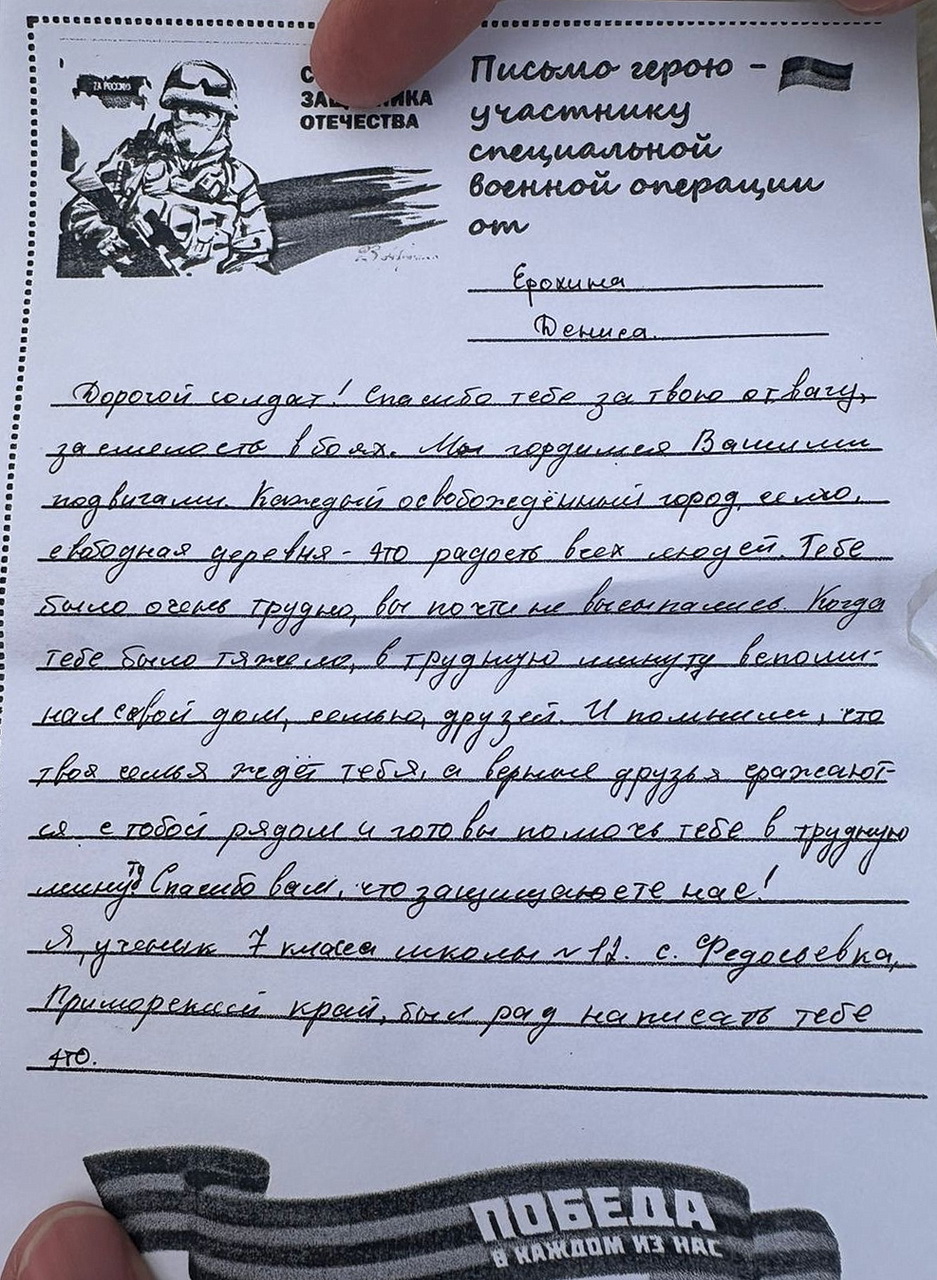 ZА РОССИЮ
С
ЗАЩ НИКА
ОТЕЧЕСТВА
Письмо герою –
участнику
специальной
военной операции
от
Ерохина
Дениса.
Дорогой солдат! Спасибо тебе за твою отвагу,
за смелость в боях. Мы гордимся Вашими
подвигами. Каждый освобождённый город, село,
свободная деревня - это радость всех людей. Тебе
было очень трудно, вы почти не высыпались. Когда
тебе было тяжело, в трудную минуту вспоми-
нал свой дом, семью, друзей. И помнили, что
твоя семья ждёт тебя, а верные друзья сражают-
ся с тобой рядом и готовы помочь тебе в трудную
минуту Спасибо вам, что защищаюете нас!
Я, ученик 7 класса школы №12. с. Федосьевка,
Приморский край, был рад написать тебе
это.
ПОБЕДА
В КАЖДОМ ИЗ НАС